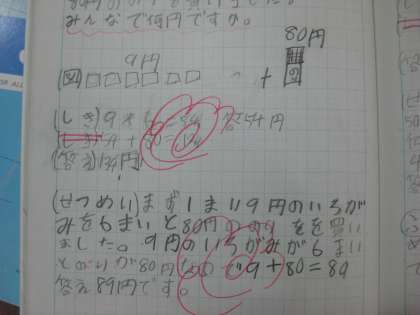 みんなで何円ですか。
80円
9円
(図)□□□□□□ +
(しき)9×6=54 答え54円
54+80=134
(答え)134円
(せつめい)まず1まい9円のいろが
みを6まいと80円ののりを買い
ました。9円のいろがみが6まい
とのりが80円なので9+80=89
答え89円です。